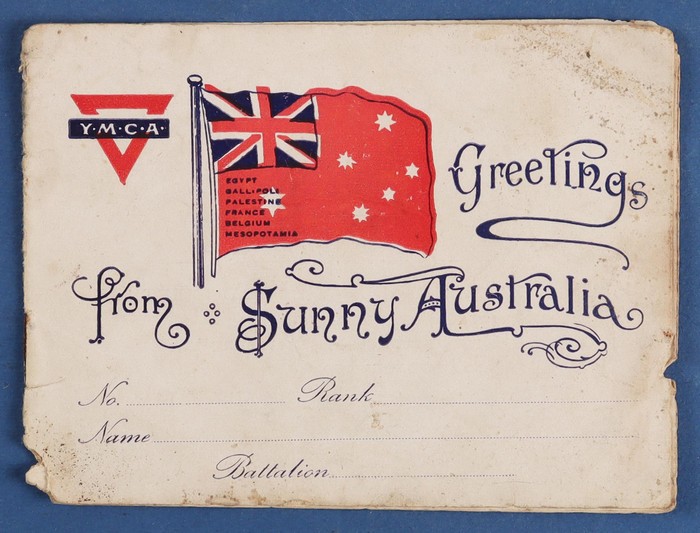 Y·M·C·A·
EGYPT
GALLIPOLI
PALESTINE
FRANCE
BELGIUM
MESOPOTAMIA
Greetings
from Sunny Australia
No. Rank
Name
Battalion